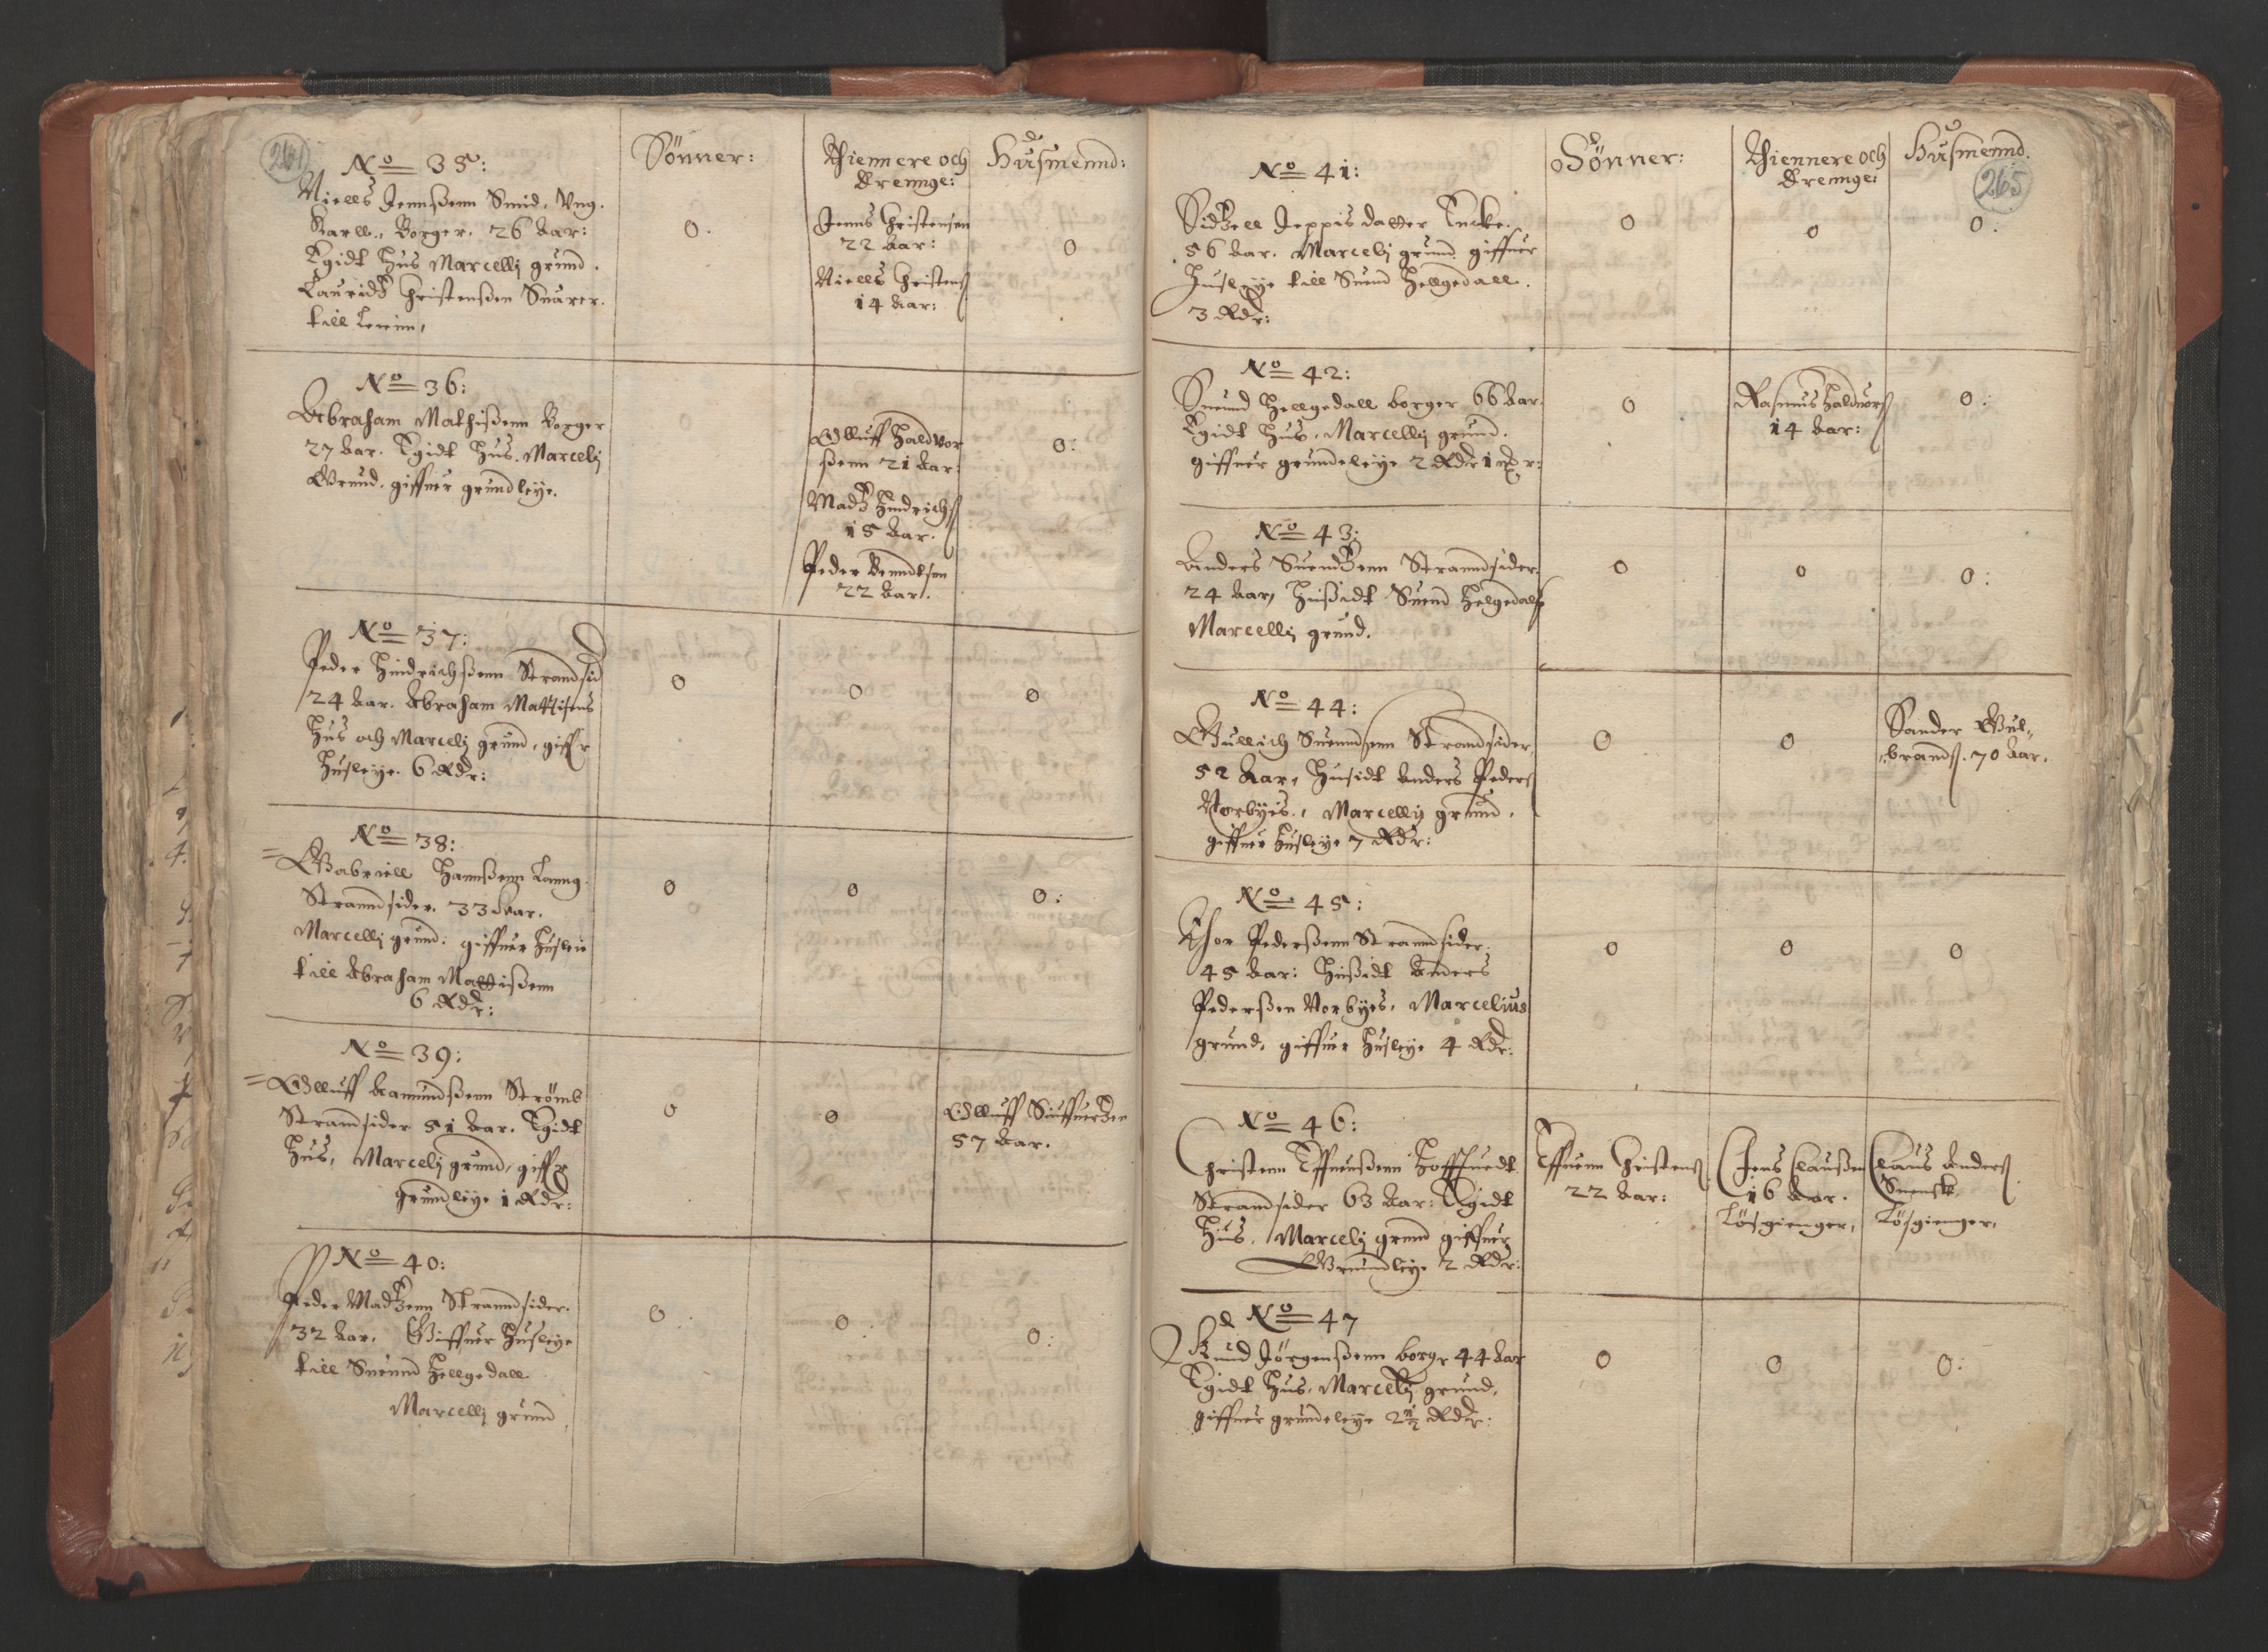 264
No 35:
Sönner:
Thiennere och
drennge:
Husmennd:
Niells Jennßenn Smid, Vng.
Karll., Borger. 26 Aar:
Egidt Hus Marcellj grund.
Lauridz Christenßen
till
0.
Jenns Christensen
22 Aar:
Niells Christens
14 Aar:
0
No 36:
Abraham Mathißenn Borger
27 Aar. Egidt Hus. Marcelj
Grund. giffuer grundleye.
Olluff Haldvor
ßenn 21 Aar:
Madz Hendrichs
15 Aar.
Peder Benndtsen
22 Aar.
0:
No 37:
Peder Hindrichßenn Strandsid
24 Aar. Abraham Mattisens
Hus och Marcelj grund, giffr
Husleye. 6 Rdr:
0
0
0
No 38:
Gabriell Hannßenn Lanng.
Stranndsider. 33 Aar.
Marcellj grund: giffuer Husleie
till Abraham Mattißenn
6 Rdr:
0
0
0:
No 39:
Olluff Aamundßenn Strömb
Strandsider 51 Aar. Egidt
Hus, Marcelj grund, giffr
grundleye 1 Rdr:
0
0
Olluff Siuffuerdzen
57 Aar.
No 40:
Peder Madzenn Stranndsider.
32 Aar. Giffuer Husleye
till Suennd Hellgedall
Marcellj grund
0
0
0:
265
No 41:
Sönner:
Thiennere och
drennge:
Husmennd.
Sidzell Jeppisdatter Encke.
56 Aar. Marcelj grund giffuer
Husleye till Suend Hellgedall.
3 Rdr:
0
0
0:
No 42:
Suennd Hellgedall borger 66 Aar.
Egidt Hus. Marcellj grund.
giffuer grundeleye 2 Rdr 1
0
Rasmus Haldvors
14 Aar:
0:
No 43:
Anders Suendzenn Stranndsider.
24 Aar, Hußidt Suend Helgedals
Marcellj grund.
0
0
0:
No 44:
Gullich Suenndsenn Strandsider
52 Aar, Husidt Anders Peders
Norbyis., Marcellj grund.
giffuer Husleye 7 Rdr:
0
0
Sander Gul„
„brands. 70 Aar.
No 45:
Thor Pederßenn Stranndsider.
45 Aar: Hußidt Anders
Pederßen Norbyes. Marcelius
grund. giffuer Husleye 4 Rdr.
0
0
0
No 46:
Christenn Effuenßenn Hoffhuedt
Strandsider 63 Aar: Egidt
Hus. Marcelj grund giffuer
Grundleye 2 Rdr:
Effuenn Christens
22 Aar:
Jens Claußen
16 Aar.
Lösgienger,
Claus Anders
Suenske
Lösgienger,
No 47
Knud Jörgenßenn borger 44 Aar
Egidt Hus, Marcelj grund.
giffuer grundeleye 2½ Rdr:
0
0
0: